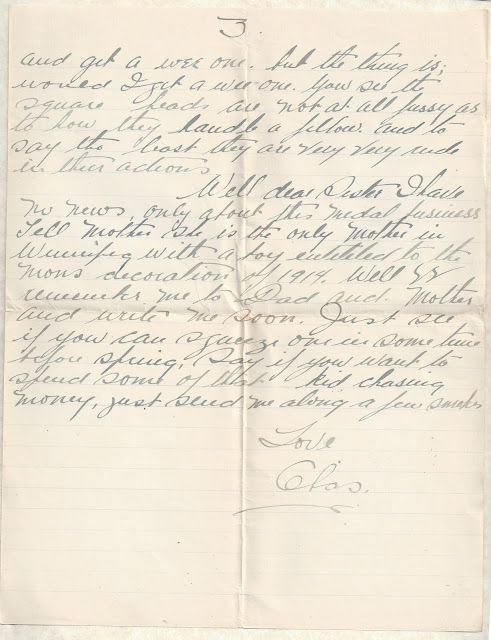 3.
and get a wee one. but the thing is;
would I get a wee one. You see the
square heads are not at all fussy as
to how they handle a fellow. and to
say the least they are very very rude
in their actions
Well dear Sister I have
no news, only about this medal business
Tell Mother she is the only Mother in
Winnipeg with a boy entitled to the
Mons decoration of 1914. Well
remember me to Dad and Mother
and write me soon. Just see
if you can squeeze one in some time
before spring. Say if you want to
spend some of that kid chasing
money, just send me along a few smokes
Love
Chas.